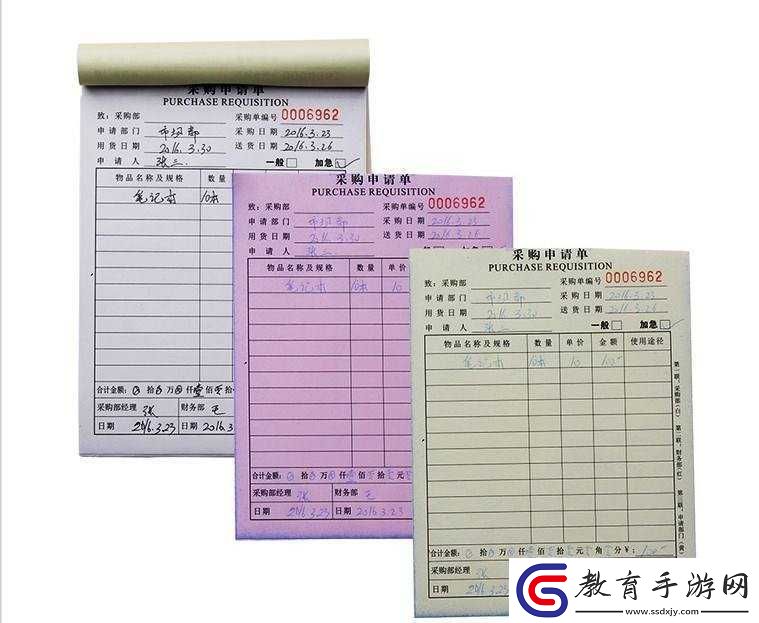 采购申请单
PURCHASE REQUISITION
致：采购部 采购单编号 0006962
申请部门 市场部 采购日期 2016.3.23
用货日期 2016.3.30 送货日期 2016.3.26
申请人 张三 一般 加急
物品名称及规格 数量
笔记本 10本
合计金额： 拾 万 仟壹佰 拾
采购部经理 张 财务部 王
日期 2016.3.23 日期 2016.3.
采购申请单
PURCHASE REQUISITION
致：采购部 采购单编号 0006962
申请部门 市场部 采购日期 2016.3.23
用货日期 2016.3.30 送货日期 2016.3.26
申请人 张三
物品名称及规格 数量 单价
笔记本 10本 10
合计金额： 拾 万 仟壹佰 拾 元
采购部经理 张 财务部 王
日期 2016.3.23 日期 2016.3.23
采购申请单
PURCHASE REQUISITION
致：采购部 采购单编号 0006962
申请部门 市场部 采购日期 2016.3.23
用货日期 2016.3.30 送货日期 2016.3.26
申请人 张三 一般 加急
物品名称及规格 数量 单价 金额 使用途径
笔记本 10本 10 100
合计金额： 拾 万 仟 佰 拾 元 角 分￥：
采购部经理 张
日期 2016.3.23
第一联：采购部(白) 第二联：财务部(红) 第三联：申请部门(黄)
教育手游网
www.ssdxjy.com